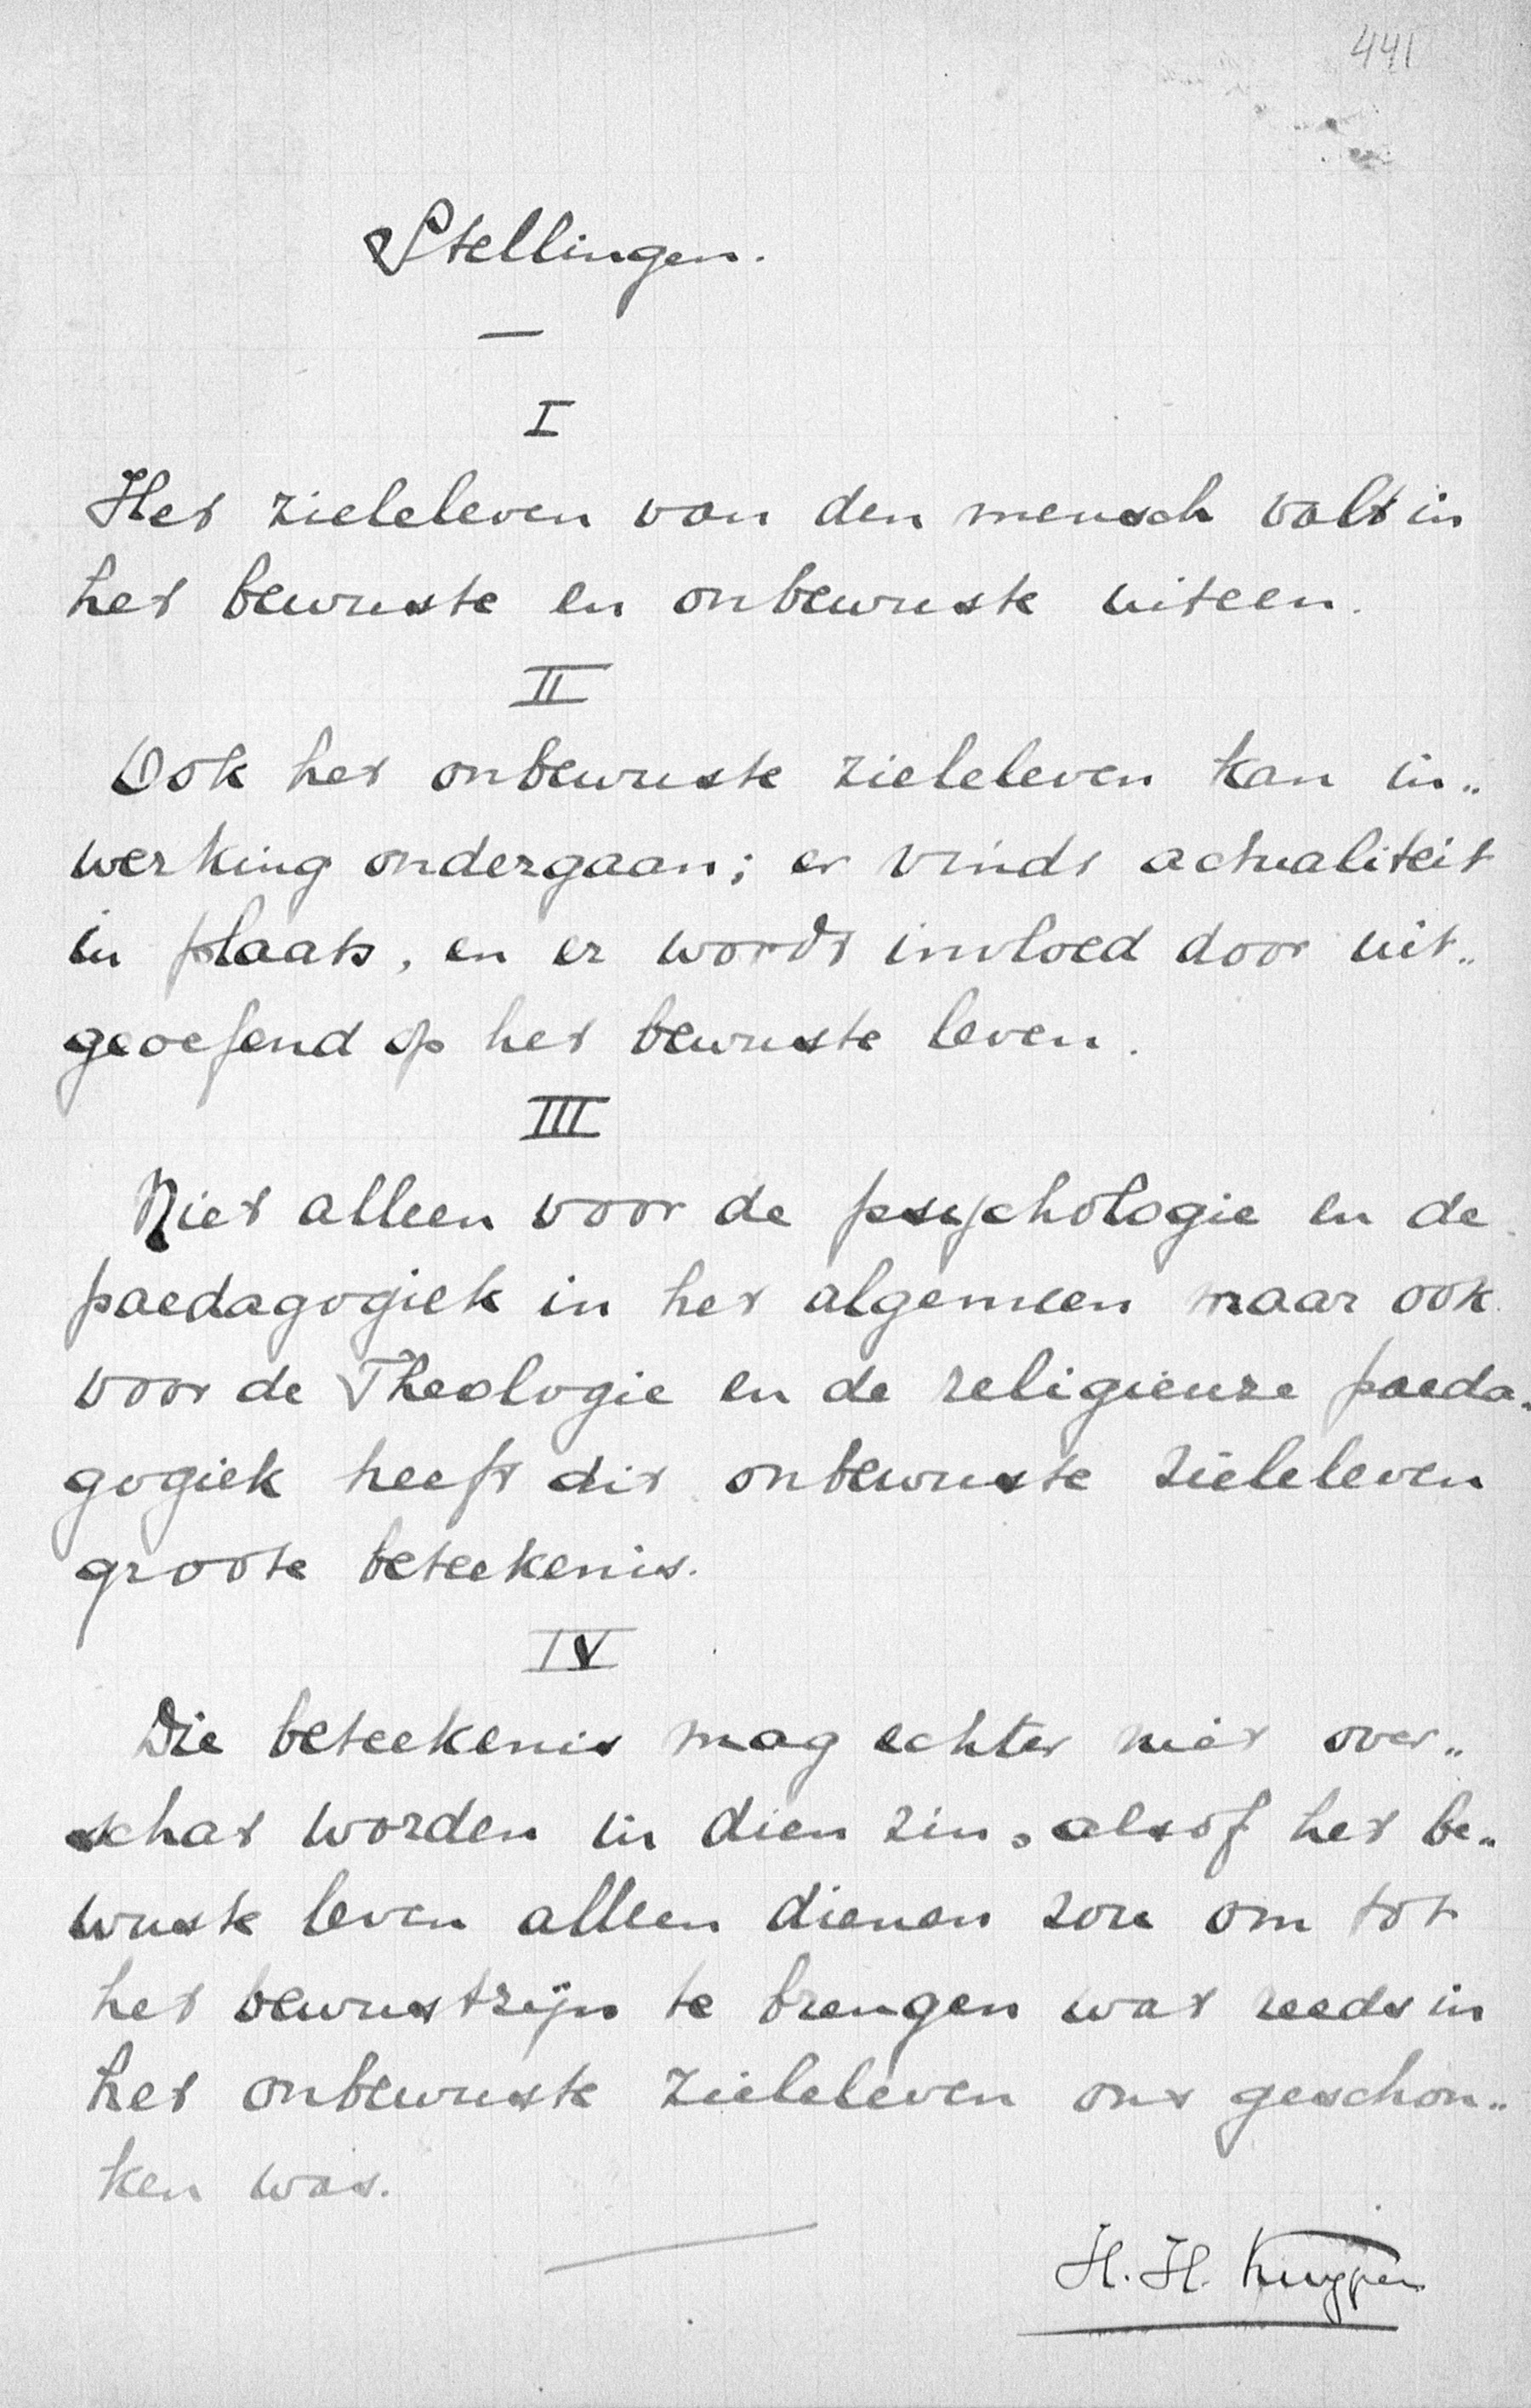 441
Stellingen.
I
Het zieleleven van den mensch valt in
het bewuste en onbewuste uiteen.
II
Ook het onbewuste zieleleven kan in„
werking ondergaan; er vindt actualiteit
in plaats, en er wordt invloed door uit„
geoefend op het bewuste leven.
III
Niet alleen voor de psychologie en de
paedagogiek in het algemeen maar ook
voor de Theologie en de religieuze paeda„
gogiek heeft dit onbewuste zieleleven
groote beteekenis.
IV
Die beteekenis mag echter niet over„
schat worden in dien zin, alsof het be„
wuste leven alleen dienen zou om tot
het bewustzijn te brengen wat reeds in
het onbewuste zieleleven ons geschon„
ken was.
H. H. Kuyper